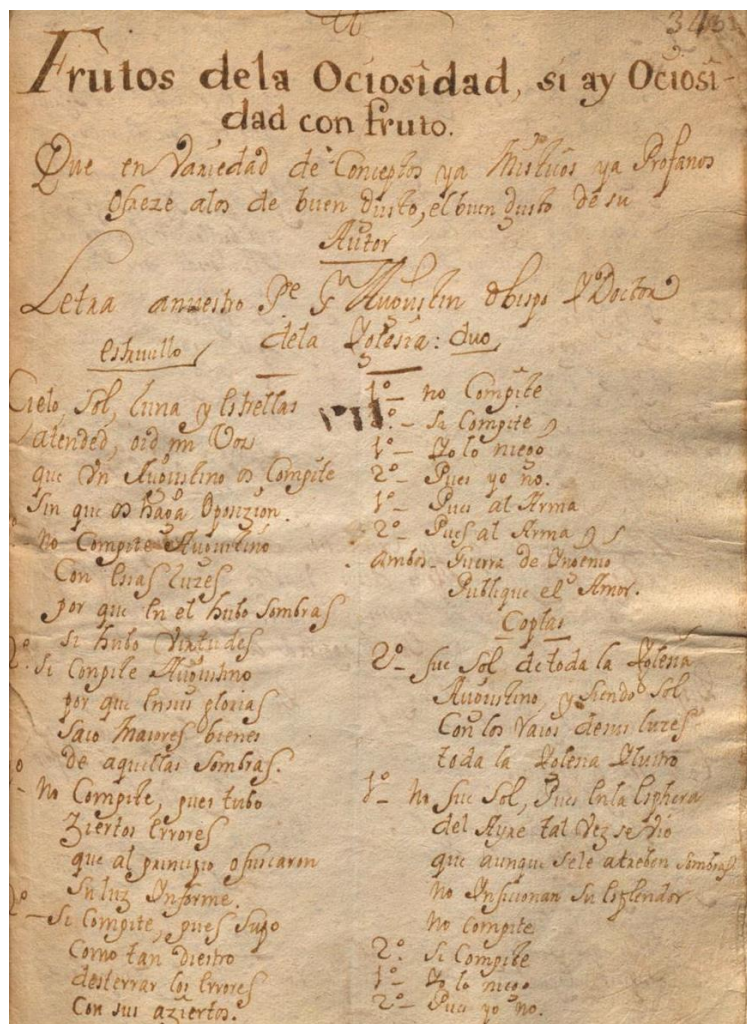 Frutos dela Ociosidad, si ay Ociosi-
dad con fruto.
Que en Variedad de Conceptos ya Misticos ya Profanos
ofreze alos de buen Gusto, el buen gusto de su
Autor
Letra anuestro Pe Sn Augustin Obispo Y Doctor
dela Yglesia: duo
estriuillo
Cielo, Sol, luna y Estrellas
atended, oid mi Voz
que Un Augustino os Compite
Sin que os haga Oposizion.
No Compite Augustino
Con essas luzes
por que en el hubo Sombras
si hubo Virtudes
2º. Si Conpite Augustino
por que ensus glorias
saco Maiores bienes
de aquellas Sombras.
No Compite, pues tubo
Ziertos Errores
que al prinzipio ofuscaron
su luz Ynforme.
2º - Si Compite, pues Supo
Como tan Diestro
desterrar los Errores
Con sus aziertos.
1º - no Compite
2º. - Si Compite
1º - Yo lo niego
2º - Pues yo no.
1º - Pues al Arma
2º - Pues al Arma
ambos - Guerra de Yngenio
Publique el Amor.
Coplas
2º - fue Sol de toda la Yglesia
Augustino, y siendo Sol
Con los Raios desus luzes
toda la Yglesia Ylustro
1º - No fue Sol, Pues Enla Esphera
del Ayre tal Vez se Vio
que aunque sele atreben Sombras
No Ynficionan Su Esplendor
No compite
2º. Si Compite
1º - Yo lo niego
2º - Pues yo no.